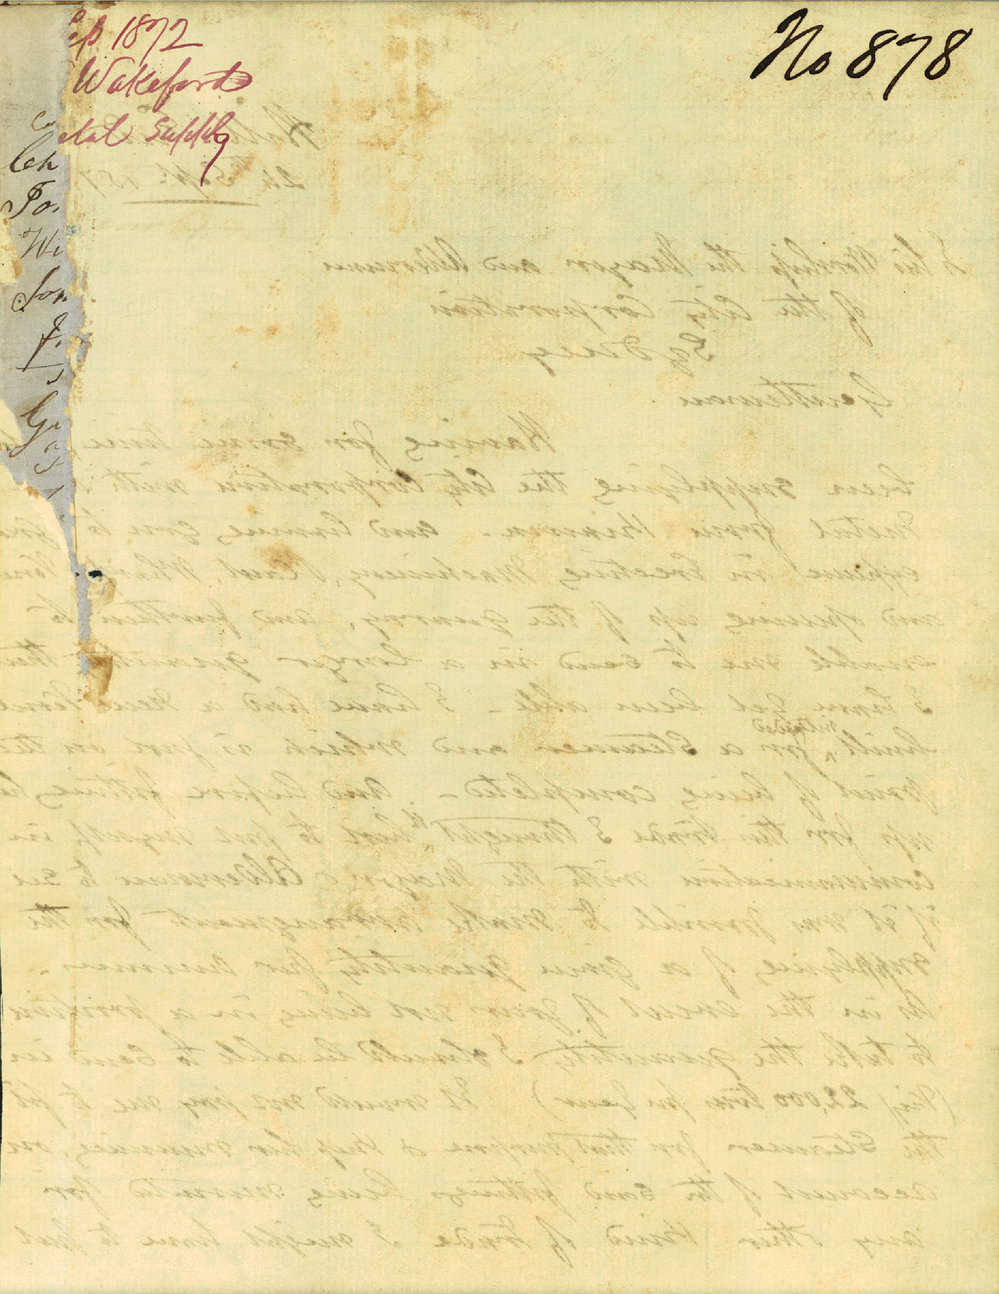 ep 1872
Wakeford
etal Supply
No 878
Ch
To
Wi
Son
24 Sept 187
To his Worship the Mayor and Aldermen
of the City Corporation
Sydney
Gentlemen
Having for some time
been supplying the City Corporation with
metal from Kiama. and having gone to
expense in Erecting Machinery,
and opening up of the quarry, and further to
enable me to send in a larger quantity than
I have yet been able - I have had a new
built, intended for a Steamer and which is just on the
point of being completed - and before fitting her
up for this trade I thought it best to put myself in
communication with the Mayor & Aldermen to see
if it was possible to make arrangement for the
supplying of a given quantity per annum -
As in the event of your not being in a position
to take the quantity I should be able to send in
(Say 22,000 tons per year) It would not pay me to fit
the Steamer for that purpose & keep her running, on
account of the said fittings being unsuited for
any other kind of trade I might have to put